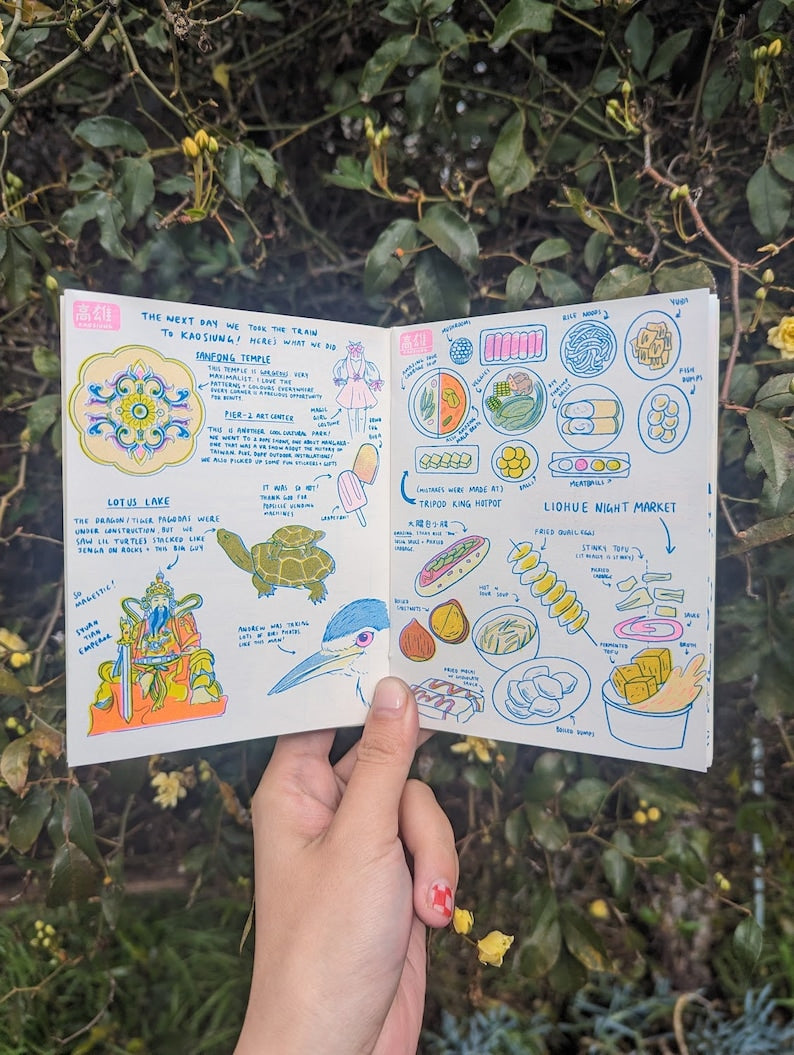 高雄
KAOSIUNG
THE NEXT DAY WE TOOK THE TRAIN
TO KAOSIUNG! HERE'S WHAT WE DID
SANFONG TEMPLE
THIS TEMPLE IS GORGEOUS. VERY
MAXIMALIST. I LOVE THE
PATTERNS + COLOURS EVERYWHERE
EVERY CORNER IS A PRECIOUS OPPORTUNITY
FOR
PIER-2 ART CENTER
THIS IS ANOTHER COOL CULTURAL PARK!
WE WENT TO 2 DOPE SHOWS, ONE ABOUT MANGAKA-
ONE THAT WAS A VR SHOW ABOUT THE HISTORY OF
TAIWAN. PLUS, DOPE OUTDOOR INSTALLATIONS!
WE ALSO PICKED UP SOME FUN STICKERS + GIFTS
MAGIC
GIRL
COSTUME
IT WAS SO HOT!
THANK GOD FOR
POPSICLE VENDING
MACHINES
GRAPEFRUIT
LOTUS LAKE
THE DRAGON/TIGER PAGODAS WERE
UNDER CONSTRUCTION, BUT WE
SAW LIL TURTLES STACKED LIKE
JENGA ON ROCKS + THIS BIG GUY
SO
MAGESTIC!
TIAN
EMPEROR
ANDREW WAS TAKING
LOTS OF BIRD PHOTOS
LIKE THIS MAN!
高雄
KAOSIUNG
MUSHROOMS
RICE NOODS
YUBA
AMAZING SOUR
CABBAGE SOUP
VEGGIES
DIY
SHRIMP
FISH
DUMPS
ALSO AMAZING
MALA BROTH
BALLS?
MEATBALLS
(MISTAKES WERE MADE AT)
TRIPOD KING HOTPOT
LIOHUE NIGHT MARKET
大腸包小腸
AMAZING. STICKY RICE
SAUSAGE + PICKLED
CABBAGE.
FRIED QUAIL EGGS
STINKY TOFU
(IT REALLY IS STINKY)
PICKLED
CABBAGE
HOT N
SOUR SOUP
BOILED
CHESTNUTS
SAUCE
BROTH
FERMENTED
TOFU
FRIED MOCHI
W/ CHOCOLATE
SAUCE
BOILED DUMPS